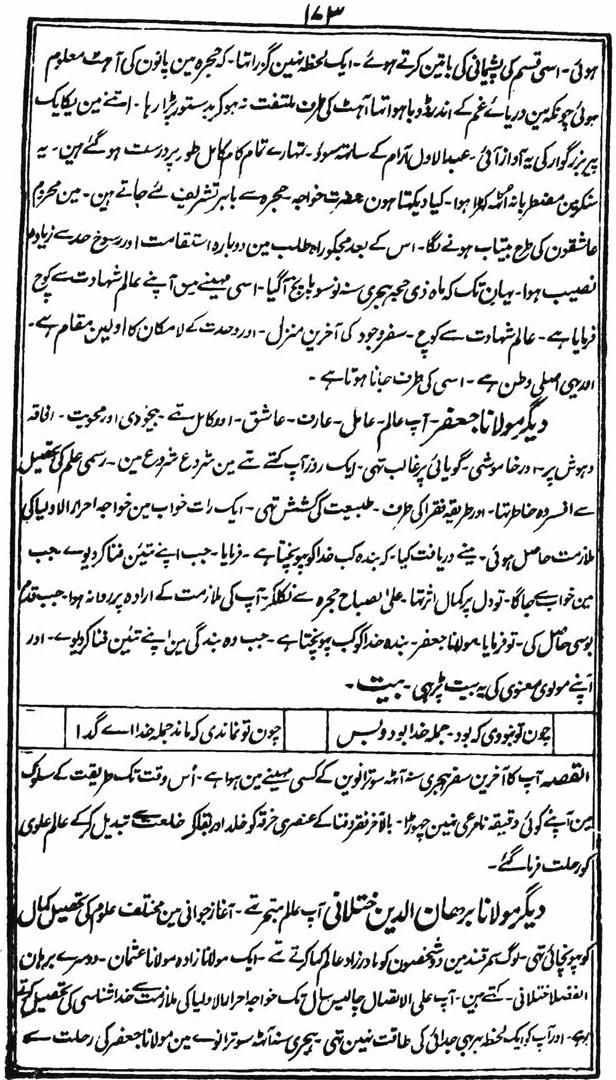 ۱۷۳
ہوئی۔ اسی قسم کی پشیمانی کی باتین کرتے ہوئے۔ ایک لحظہ نہین گزرا تہا۔ کہ حجرہ مین پانون کی آہٹ معلوم
ہوئی چونکہ مین دریائے غم کے اندر ڈوبا ہوا تہا آہٹ کی طرف ملتفت نہ ہوکر بدستور پڑا رہا۔ اتنے مین یکایک
پیر بزرگوار کی یہ آواز آئی۔ عبدالاول آرام کے ساتہ سو۔ تمہارے تمام کام کامل طور پر درست ہوگئے ہین۔ یہ
سنکر مین مضطربانہ اُٹہ کہڑا ہوا۔ کیا دیکہتا ہون حضرت خواجہ۔ حجرہ سے باہر تشریف لئے جاتے ہین۔ مین محروم
عاشقون کی طرح بیتاب ہونے لگا۔ اس کے بعد مجکو راہ طلب مین دوبارہ استقامت اور رسوخ حد سے زیادہ
نصیب ہوا۔ یہان تک کہ ماہ ذی حجہ ہجری سنہ نو سو پانچ آگیا۔ اسی مہینے مین آپنے عالم شہادت سے کوچ
فرمایا ہے۔ عالم شہادت سے کوچ۔ سفر وجود کی آخرین منزل۔ اور وحدت کے لامکان کا اولین مقام ہے۔
اور یہی اصلی وطن ہے۔ اسی کی طرف جانا ہوتا ہے۔
دیگر مولانا جعفر۔ آپ عالم۔ عامل۔ عارف۔ عاشق۔ اور کامل تہے۔ بیخودی اور محویت۔ افاقہ
و ہوش پر۔ اور خاموشی۔ گویائی پر غالب تہی۔ ایک روز آپ کہتے تہے مین شروع شروع مین۔ رسمی علم کی تحصیل
سے افسردہ خاطر تہا۔ اور طریقہ فقرا کی طرف۔ طبیعت کی کشش تہی۔ ایک رات خواب مین خواجہ احرار الاولیا کی
ملازمت حاصل ہوئی۔ مینے دریافت کیا۔ کہ بندہ کب خدا کو پہونچتا ہے۔ فرمایا۔ جب اپنے تئین فنا کر دیوے جب
مین خواب سے جاگا۔ تو دل پر کمال اثر تہا۔ علی الصباح حجرہ سے نکلکر۔ آپ کی ملازمت کے ارادہ پر روانہ ہوا۔ جب قدم
بوسی حاصل کی۔ تو فرمایا۔ مولانا جعفر۔ بندہ خدا کو کب پہونچتا ہے۔ جب وہ بندگی مین اپنے تئین فنا کر دیوے۔ اور
آپنے مولوی معنوی کی یہ بیت پڑہی۔ بیت۔
چون تو نبودی کہ بود۔ جملہ خدا بود و بس چون تو نماندی کہ ماند جملہ خدا اے گدا
القصہ آپ کا آخرین سفر ہجری سنہ آٹہ سو ترانوین کے کسی مہینے مین ہوا ہے۔ اُس وقت تک طریقت کے سلوک
مین آپنے کوئی دقیقہ نامرعی نہین چہوڑا۔ بالآخر فقر و فنا کے عنصری خرقہ کو خلد اور بقا کی خلعت سے تبدیل کر کے عالم علوی
کو رحلت فرما گئے۔
دیگر مولانا برھان الدین ختلانی آپ عالم متبحر تہے۔ آغاز جوانی مین مختلف علوم کی تحصیل کمال
کو پہونچائی تہی۔ لوگ سمرقند مین دو شخصون کو مادر زاد عالم کہا کرتے تہے۔ ایک مولانا زادہ مولانا عثمان۔ دوسرے برہان
الفضلا ختلانی۔ کہتے ہین۔ آپ علی الاتصال چالیس سال تک خواجہ احرار الاولیا کی ملازمت سے خدا شناسی کی تحصیل کرتے
رہے۔ اور آپ کو ایک لحظہ بہر بہی جدائی کی طاقت نہین تہی ہجری سنہ آٹہ سو ترانوے مین مولانا جعفر کی رحلت سے